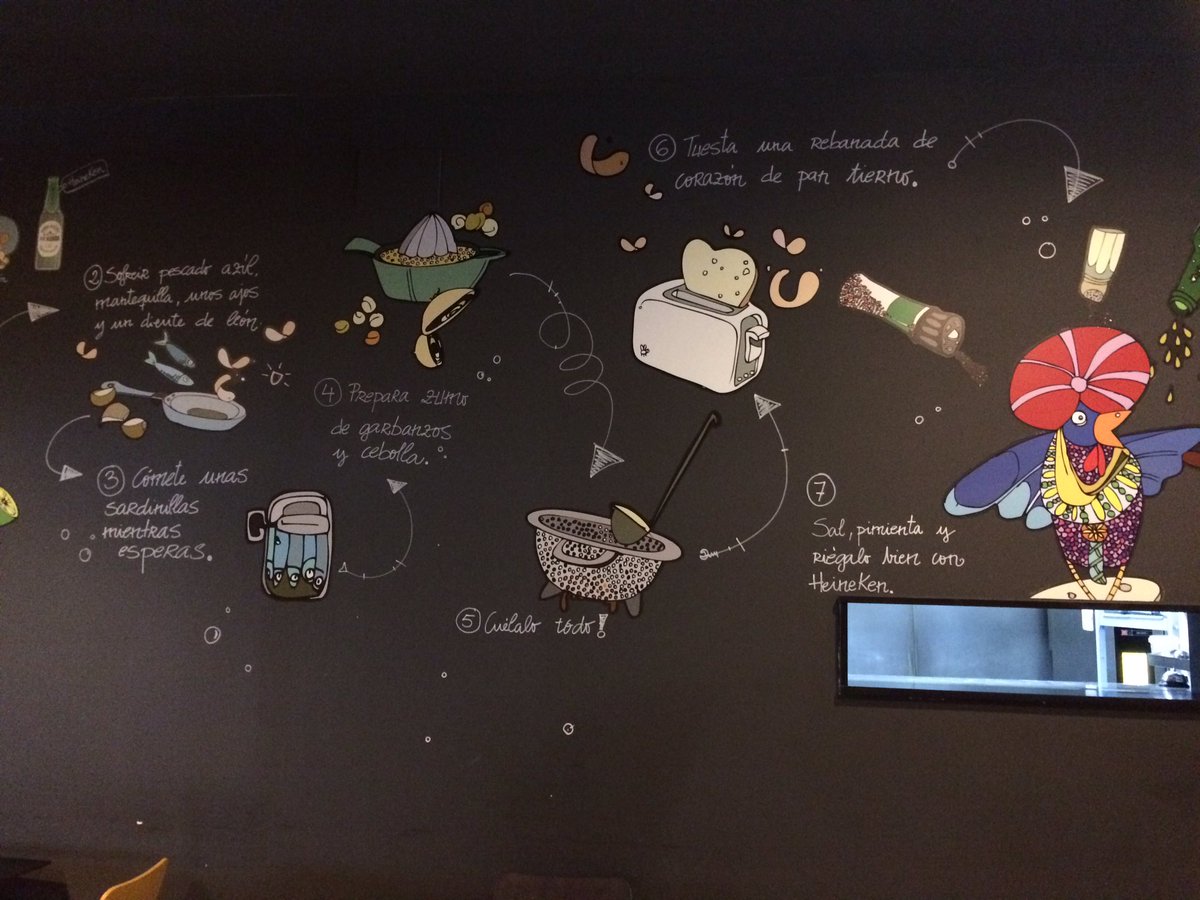 Heineken
② Sofreir pescado azúl,
mantequilla, unos ajos
y un diente de león
③ Cómete unas
sardinillas
mientras
esperas.
④ Prepara zumo
de garbanzos
y cebolla.
⑤ Cuélalo todo!
⑥ Tuesta una rebanada de
corazón de pan tierno.
⑦
Sal, pimienta y
riégalo bien con
Heineken.